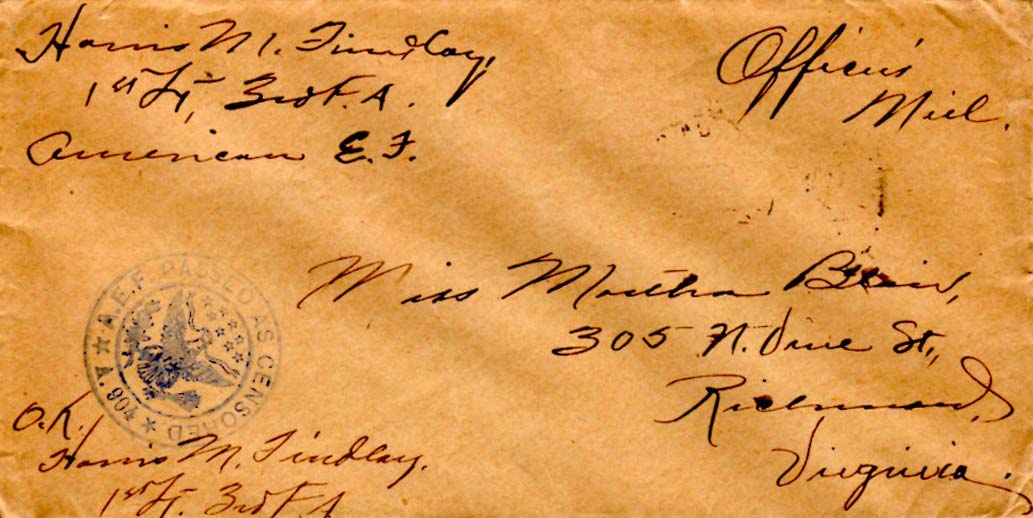 Harris M. Findlay,
1st Lt, 3rd F. A.
American E. F.
Officer's
Mail.
Miss Martha Blair,
305 N. Vine St.,
Richmond,
Virginia.
A.E.F. PASSED AS CENSORED ★ A.V. 904 ★
O.K.
Harris M. Findlay.
1st Lt. 3rd F. A